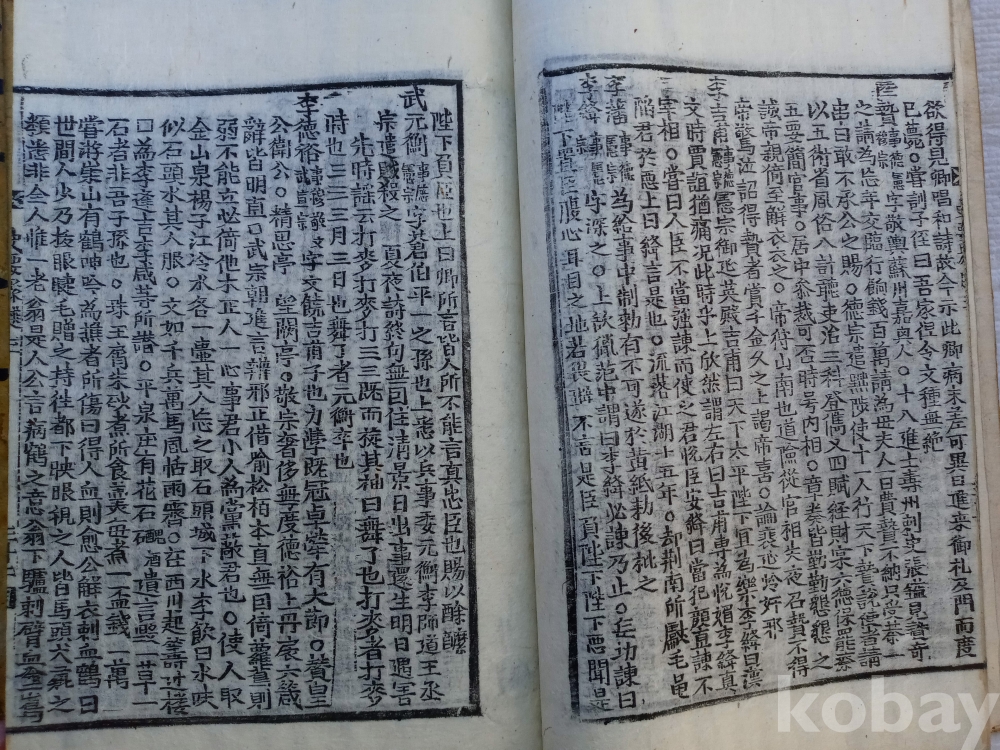 欲得見卿唱和詩故令示此卿病未差可異日進來御札及門而度
已薨。嘗訓子侄曰吾家但令文種無絶
陸贄事德宗字敬輿蘇州嘉興人。十八進士壽州刺史張鎰見語奇
之請爲忘年交臨行餉錢百萬請爲母夫人日費贄不納只受茶一
串曰敢不承公之賜。德宗遣黜陟使十一人行天下贄說使者請
以五術省風俗八計聽吏治三科登儁乂四賦經財宗六德保罷瘵
五要簡官事。居中參裁可否時号內相。章奏皆勤勤懇懇之
誠帝親倚至解衣衣之。帝狩山南也道險從官相失夜召贄不得
帝驚泣詔得贄者賞千金久之上謁帝言。論裴延齡奸邪
李吉甫事憲宗憲宗御延英殿吉甫曰天下太平陛下宜爲樂李絳曰漢
文時賈誼猶痛況此時乎上欣然謂左右曰吉甫專爲悅媚李絳眞
宰相。嘗曰人臣不當強諫而使之君悅臣安絳曰當犯顔直諫不
陷君於惡上曰絳言是也。流落江湖十五年。
李藩事憲宗 爲給事中制勅有不可遂於黃紙勅後批之
李絳事憲宗字深之。上欲獵苑中謂曰李絳必諫乃止。
陛下置臣腹心耳目之地若畏 不言是臣負陛下陛下惡聞是
陛下負臣也上曰卿所言皆人所不能言真忠臣也賜以酴醾
武元衡事憲宗字蒼伯平一之孫也上悉以兵事委元衡李師道王承
宗遣賊殺之 夏夜詩終句無因住淸景日出事還生明日遇害
先時謠云打麥打麥打三三既而旋其袖曰舞了也打麥者打麥
時也三三三月三日也舞了者元衡卒也
李德裕 字文饒吉甫子也力學既冠卓犖有大節。贊皇
公衛公。精思亭 望闕亭。敬宗奢侈無度德裕上丹扆六箴
辭皆明直。武宗朝進言辨邪正借喩松柏本直無因倚蘿蔦則
弱不能立必倚他木正人一心事君小人爲黨蔽君也。使人取
金山泉楊子江冷水各一壺其人忘之取石頭城下水李飮曰水味
似石頭水其人服。文如千兵萬馬風恬雨霽。在西川起籌邊樓
爲李逢吉李 所譖。平泉庄有花石 遺言与一草一
石者非吾子孫也。珠玉屑朱砂煮所食羹每煮一盃錢一萬
嘗游嵩山有鶴呻吟爲樵者所傷曰得人血則愈公解衣刺血鶴曰
世間人少乃拔眼睫毛贈之持往都下映眼視之人皆馬頭犬彘之
類悉非全人惟一老翁是人公言病鶴之意翁下驢刺臂血